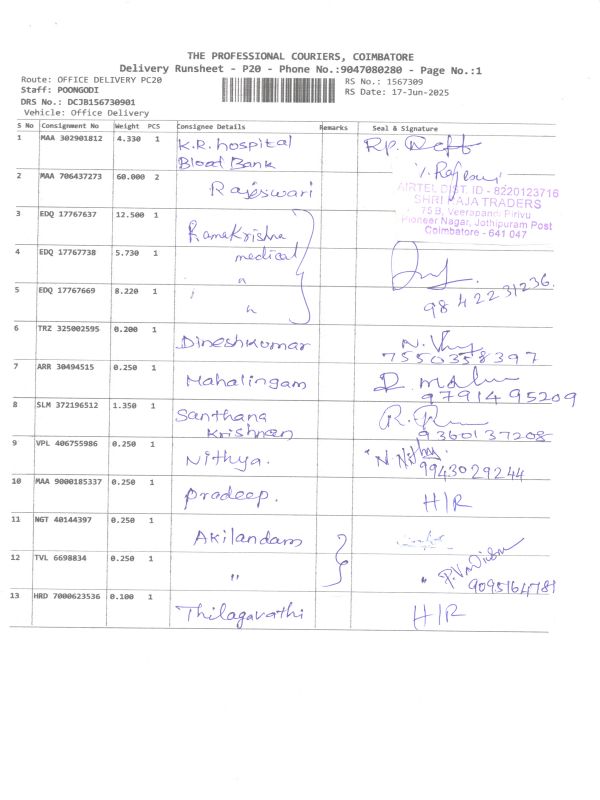 THE PROFESSIONAL COURIERS, COIMBATORE
Delivery Runsheet - P20 - Phone No.:9047080280 - Page No.:1
Route: OFFICE DELIVERY PC20
RS No.: 1567309
Staff: POONGODI
RS Date: 17-Jun-2025
DRS No.: DCJB156730901
Vehicle: Office Delivery
S No Consignment No Weight PCS Consignee Details Remarks Seal & Signature
1 MAA 302901812 4.330 1 K.R. hospital
Blood Bank
2 MAA 706437273 60.000 2 Rajeswari
AIRTEL DIST. ID - 8220123716
SHRI RAJA TRADERS
75 B, Veerapandi Pirivu
Pioneer Nagar, Jothipuram Post
Coimbatore - 641 047
3 EDQ 17767637 12.500 1 Ramakrishna
medical
4 EDQ 17767738 5.730 1 "
5 EDQ 17767669 8.220 1 "
9842231236.
6 TRZ 325002595 0.200 1 Dineshkumar
7550358397
7 ARR 30494515 0.250 1 Mahalingam
9791495209
8 SLM 372196512 1.350 1 Santhana
Krishnan
9360137208
9 VPL 406755986 0.250 1 Nithya.
N Nithy
9943029244
10 MAA 9000185337 0.250 1 Pradeep. H/R
11 NGT 40144397 0.250 1 Akilandam
12 TVL 6698834 0.250 1 "
13 HRD 7000623536 0.100 1 Thilagavathi H/R